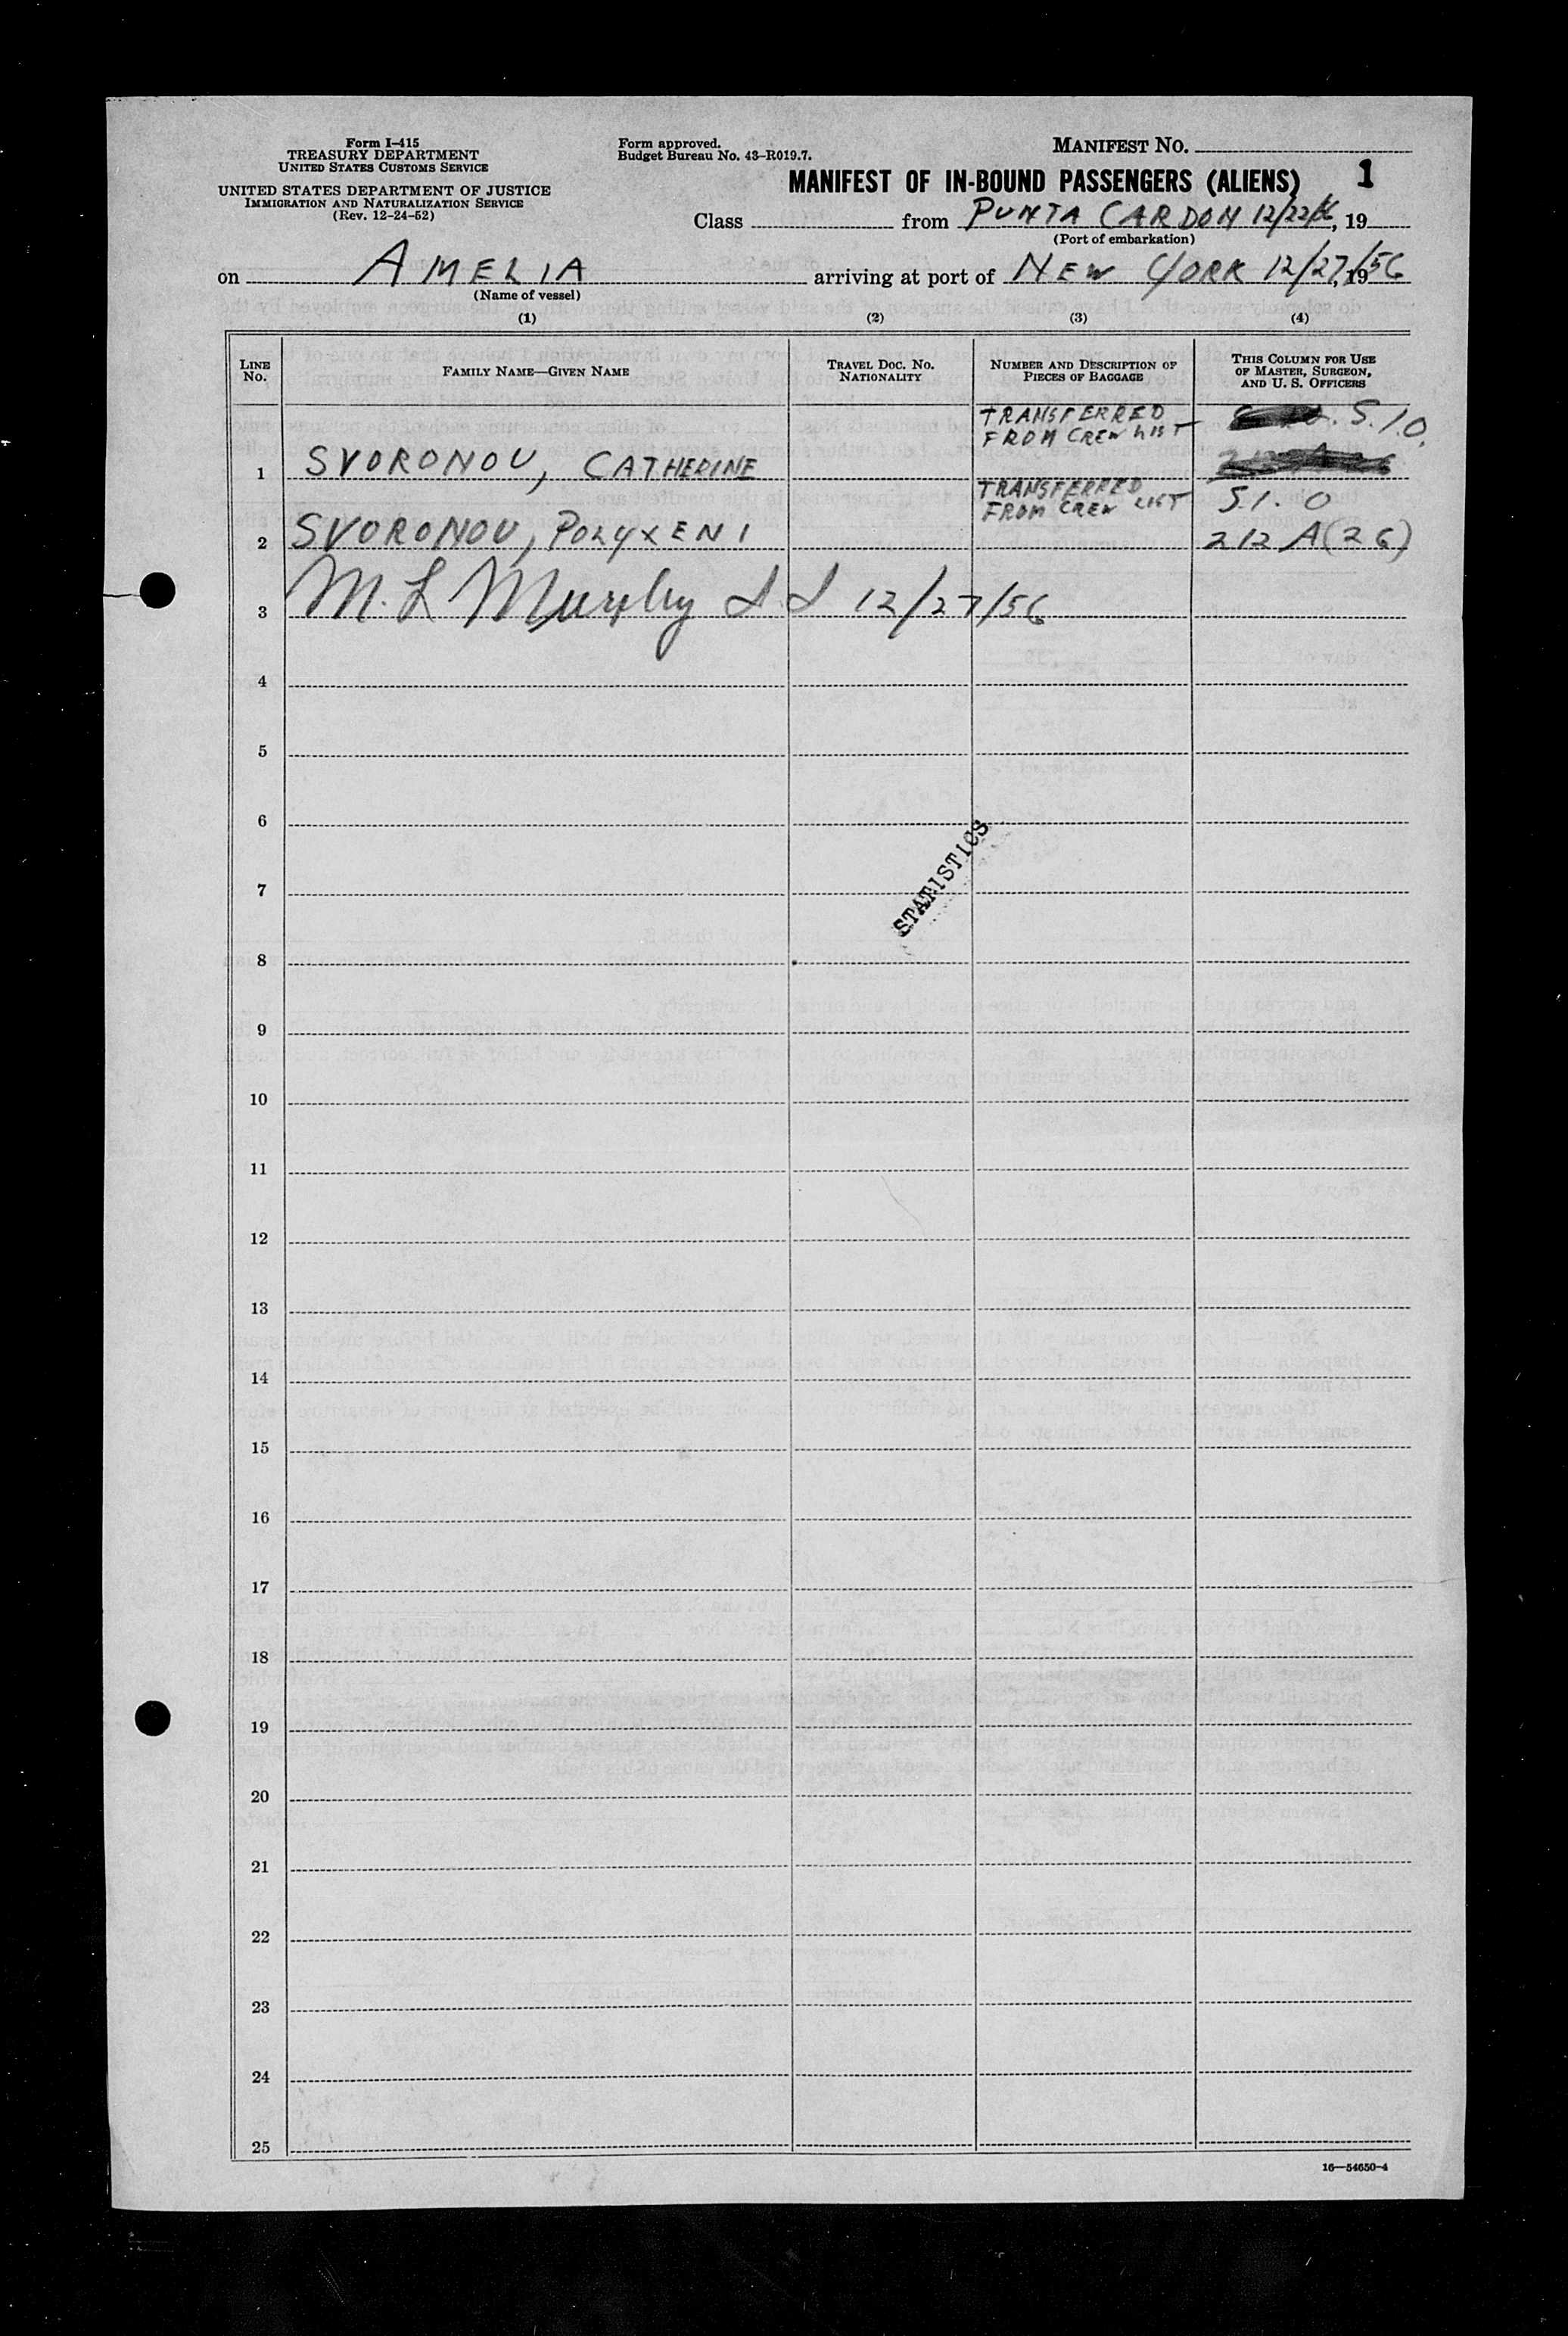 Form I-415
TREASURY DEPARTMENT
UNITED STATES CUSTOMS SERVICE
UNITED STATES DEPARTMENT OF JUSTICE
IMMIGRATION AND NATURALIZATION SERVICE
(Rev. 12-24-52)
Form approved.
Budget Bureau No. 43-R019.7.
MANIFEST NO.
MANIFEST OF IN-BOUND PASSENGERS (ALIENS) 1
Class from PUNTA CARDON 12/22/56, 19
(Port of embarkation)
on AMELIA arriving at port of NEW YORK 12/27, 19 56
(Name of vessel)
(1) (2) (3) (4)
LINE NO. FAMILY NAME—GIVEN NAME TRAVEL DOC. NO. NATIONALITY NUMBER AND DESCRIPTION OF PIECES OF BAGGAGE THIS COLUMN FOR USE OF MASTER, SURGEON, AND U. S. OFFICERS
TRANSFERRED
FROM CREW LIST S.I.O.
1 SVORONOU, CATHERINE
TRANSFERRED
FROM CREW LIST S.I.O
2 SVORONOU, POLYXENI 212 A(26)
3 M. L Murphy 12/27/56
4
5
6
STATISTICS
7
8
9
10
11
12
13
14
15
16
17
18
19
20
21
22
23
24
25
16—54650-4